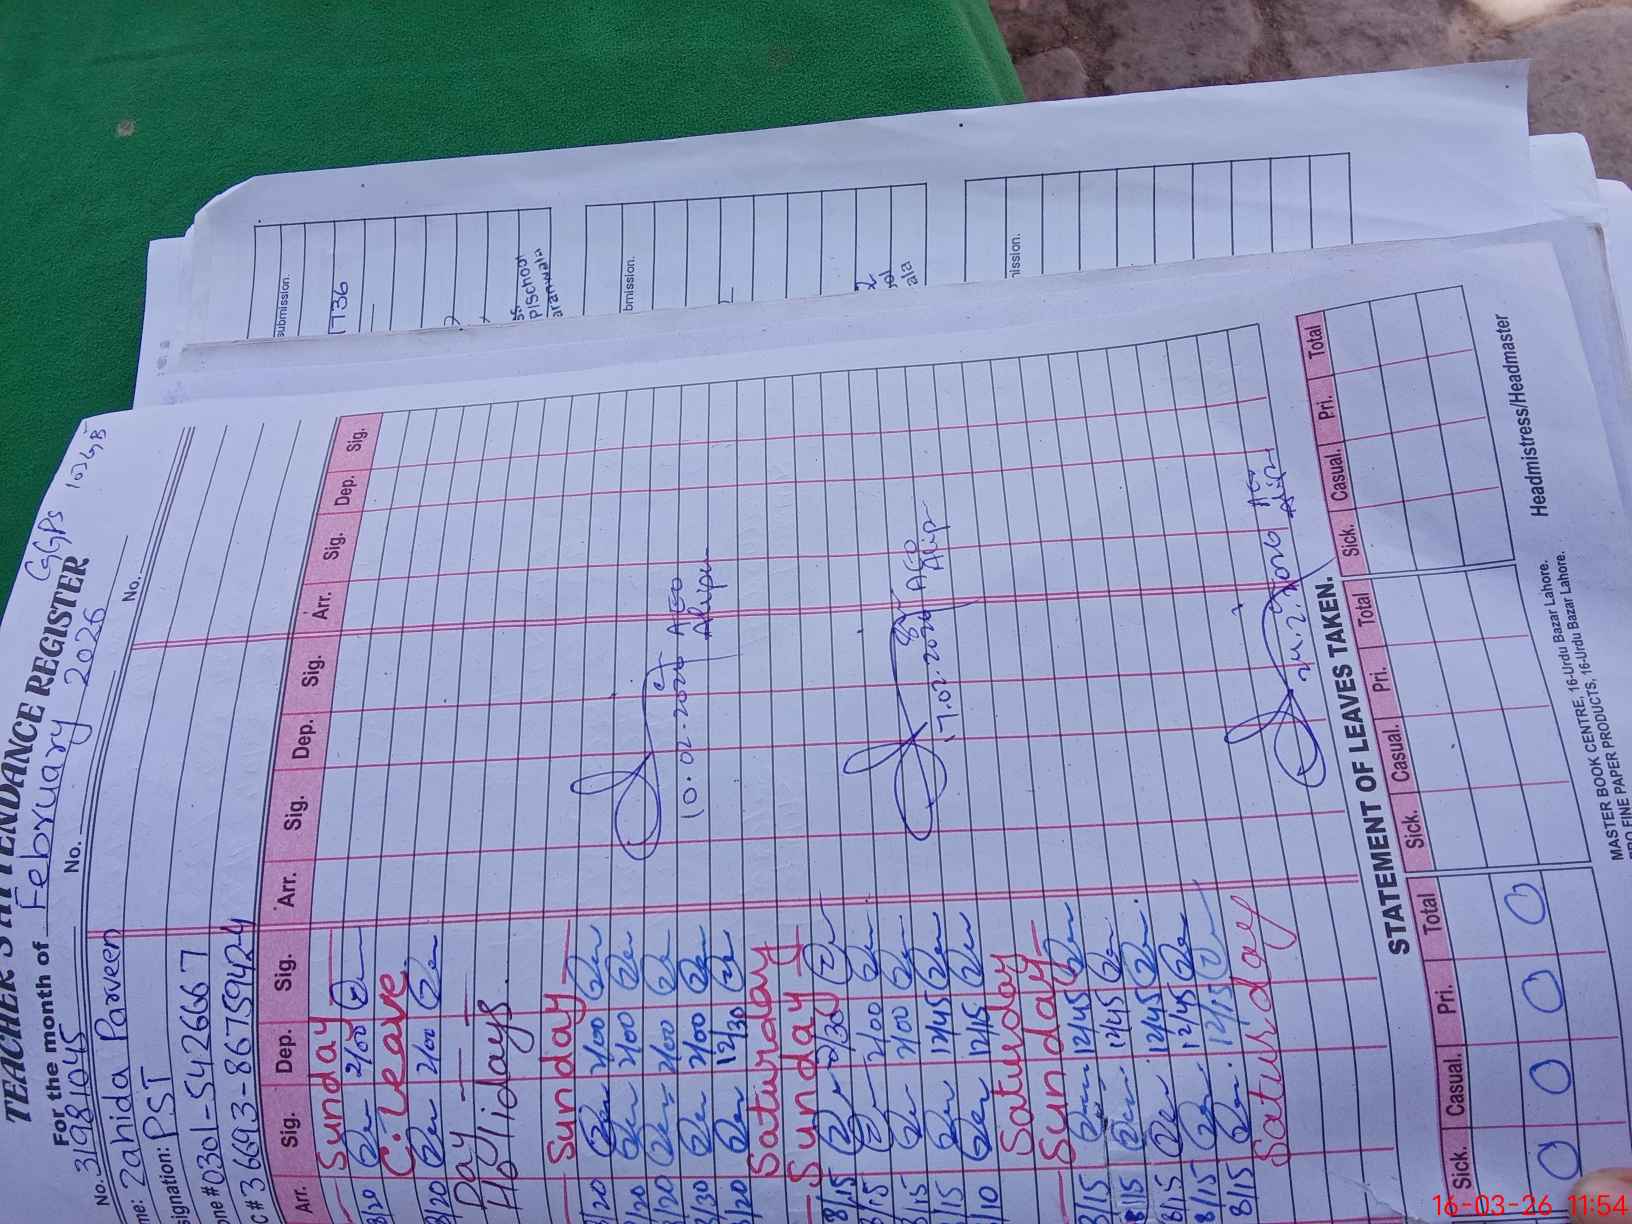 TEACHER'S ATTENDANCE REGISTER
GGPS 103GB
For the month of February 2026
No. 31981045 No. No.
me: Zahida Parveen
signation: PST
one # 0301-5426667
C # 36693-8675942-4
Arr. Sig. Dep. Sig. Arr. Sig. Dep. Sig. Arr. Sig. Dep. Sig.
Sunday
8/20 2/00
C. leave
8/20 2/00
Day
Holidays.
Sunday
8/20 2/00
8/20 2/00
8/20 2/00
10.02.2026 AEO
8/30 2/00
8/20 12/30
Saturday
Sunday
8/15 2/30
8/15 2/00
8/15 2/00
17.02.2026 AEO
8/15 12/45
8/10 12/15
Saturday
Sunday
8/15 12/45
8/15 12/45
8/15 12/45
8/15 12/45
8/15 12/15
24.2.2026 AEO
Saturday
STATEMENT OF LEAVES TAKEN.
Sick. Casual. Pri. Total Sick. Casual. Pri. Total Sick. Casual. Pri. Total
0 0 0 0
Headmistress/Headmaster
MASTER BOOK CENTRE, 16-Urdu Bazar Lahore.
PRO FINE PAPER PRODUCTS, 16-Urdu Bazar Lahore.
submission.
1736
p/School
aranwala
bmission.
ala
nission.
16-03-26 11:54